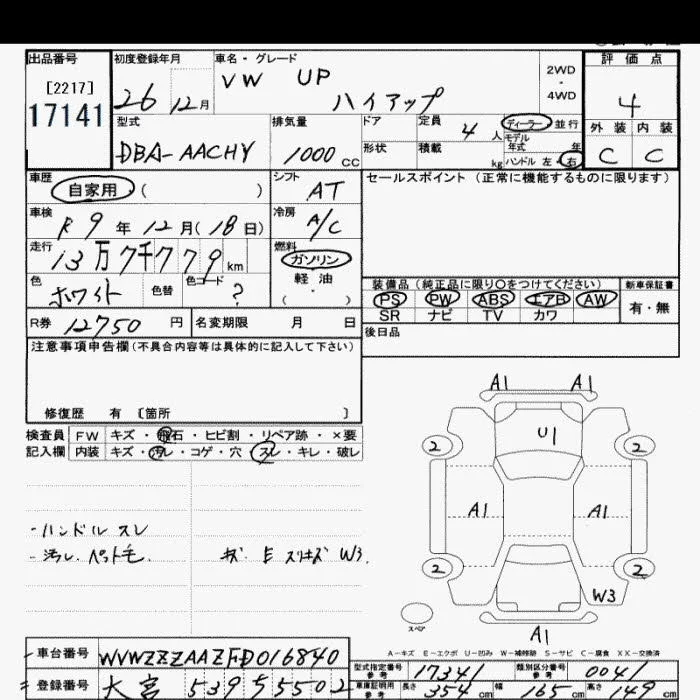 出品番号 初度登録年月 車名・グレード 評価点
[2217] VW UP 2WD・4WD
17141 26 12月 ハイアップ 4
型式 排気量 ドア 定員 4人 ディーラー 並行 外装 内装
DBA-AACHY 1000cc 形状 積載 kg モデル年式 年 ハンドル 左・右 C C
車歴 自家用 ( ) シフト AT セールスポイント(正常に機能するものに限ります)
車検 R9年12月(18日) 冷房 A/C
走行 13万7千779km 燃料 ガソリン
色 ホワイト 色替 色コード ? 軽油 ( ・ )
装備品(純正品に限り○をつけてください) 新車保証書
PS PW ABS エアB AW 有・無
SR ナビ TV カワ
R券 12750円 名変期限 月 日 後日品
注意事項申告欄(不具合内容等は具体的に記入して下さい)
修復歴 有 [箇所 ]
検査員 FW キズ・飛石・ヒビ割・リペア跡・×要
記入欄 内装 キズ・汚レ・コゲ・穴・スレ・キレ・破レ
A1 A1
U1
2 2
A1 A1
-ハンドル スレ
-汚レ. ペット毛. キズ E スリキズ W3.
2 2
W3
スペア
A1
A-キズ E-エクボ U-凹み W-補修跡 S-サビ C-腐食 XX-交換済
車台番号 WVWZZZAAZFD016840 型式指定番号 参考 17341 類別区分番号 参考 0041
登録番号 大宮 539 55502 車庫証明用 参考 長さ 354cm 幅 165cm 高さ 149cm